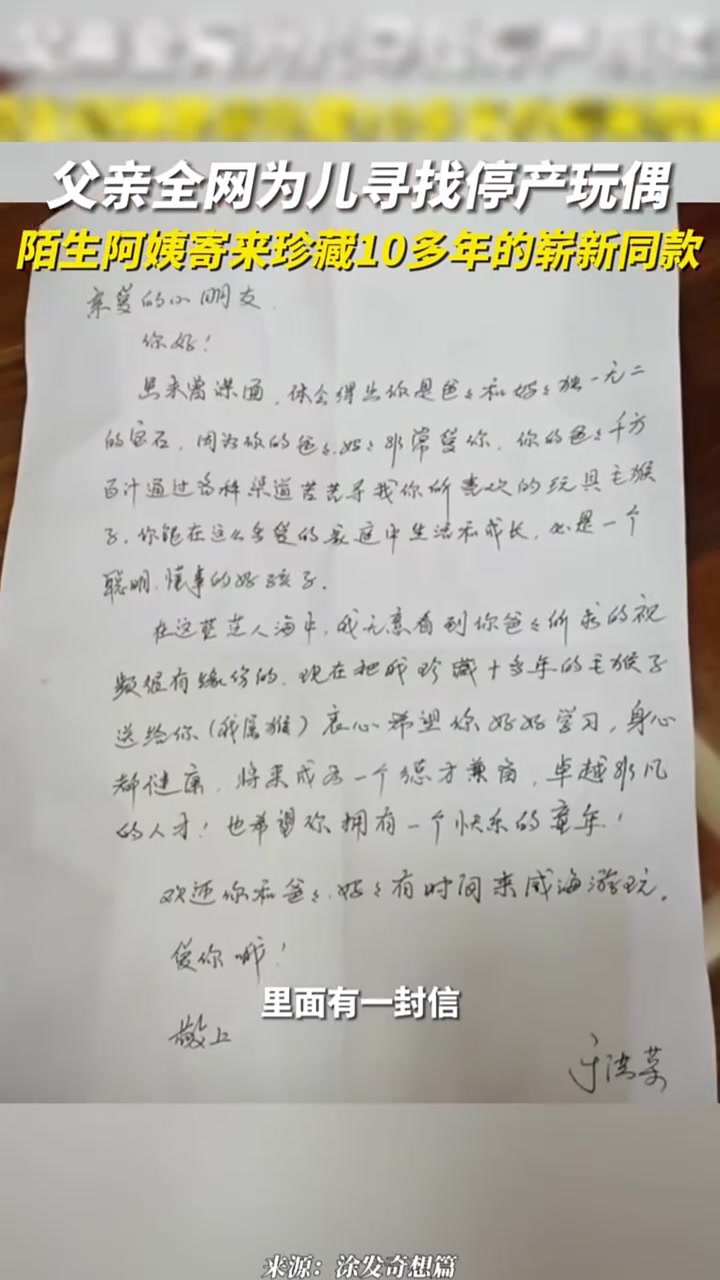 父亲全网为儿寻找停产玩偶
陌生阿姨寄来珍藏10多年的崭新同款
亲爱的小朋友，
你好！
虽未曾谋面，体会得出你是爸爸和妈妈独一无二
的宝石，因为你的爸爸、妈妈非常爱你，你的爸爸千方
百计通过各种渠道苦苦寻找你所喜欢的玩具毛猴
子，你能在这么多爱的家庭中生活和成长，必是一个
聪明、懂事的好孩子。
在这茫茫人海中，我无意看到你爸爸所求的视
频很有缘份的，现在把我珍藏十多年的毛猴子
送给你（我属猴）衷心希望你好好学习，身心
都健康，将来成为一个德才兼备，卓越非凡
的人才！也希望你拥有一个快乐的童年！
欢迎你和爸爸、妈妈有时间来威海游玩。
爱你哦！
里面有一封信
敬上
来源：涂发奇想篇